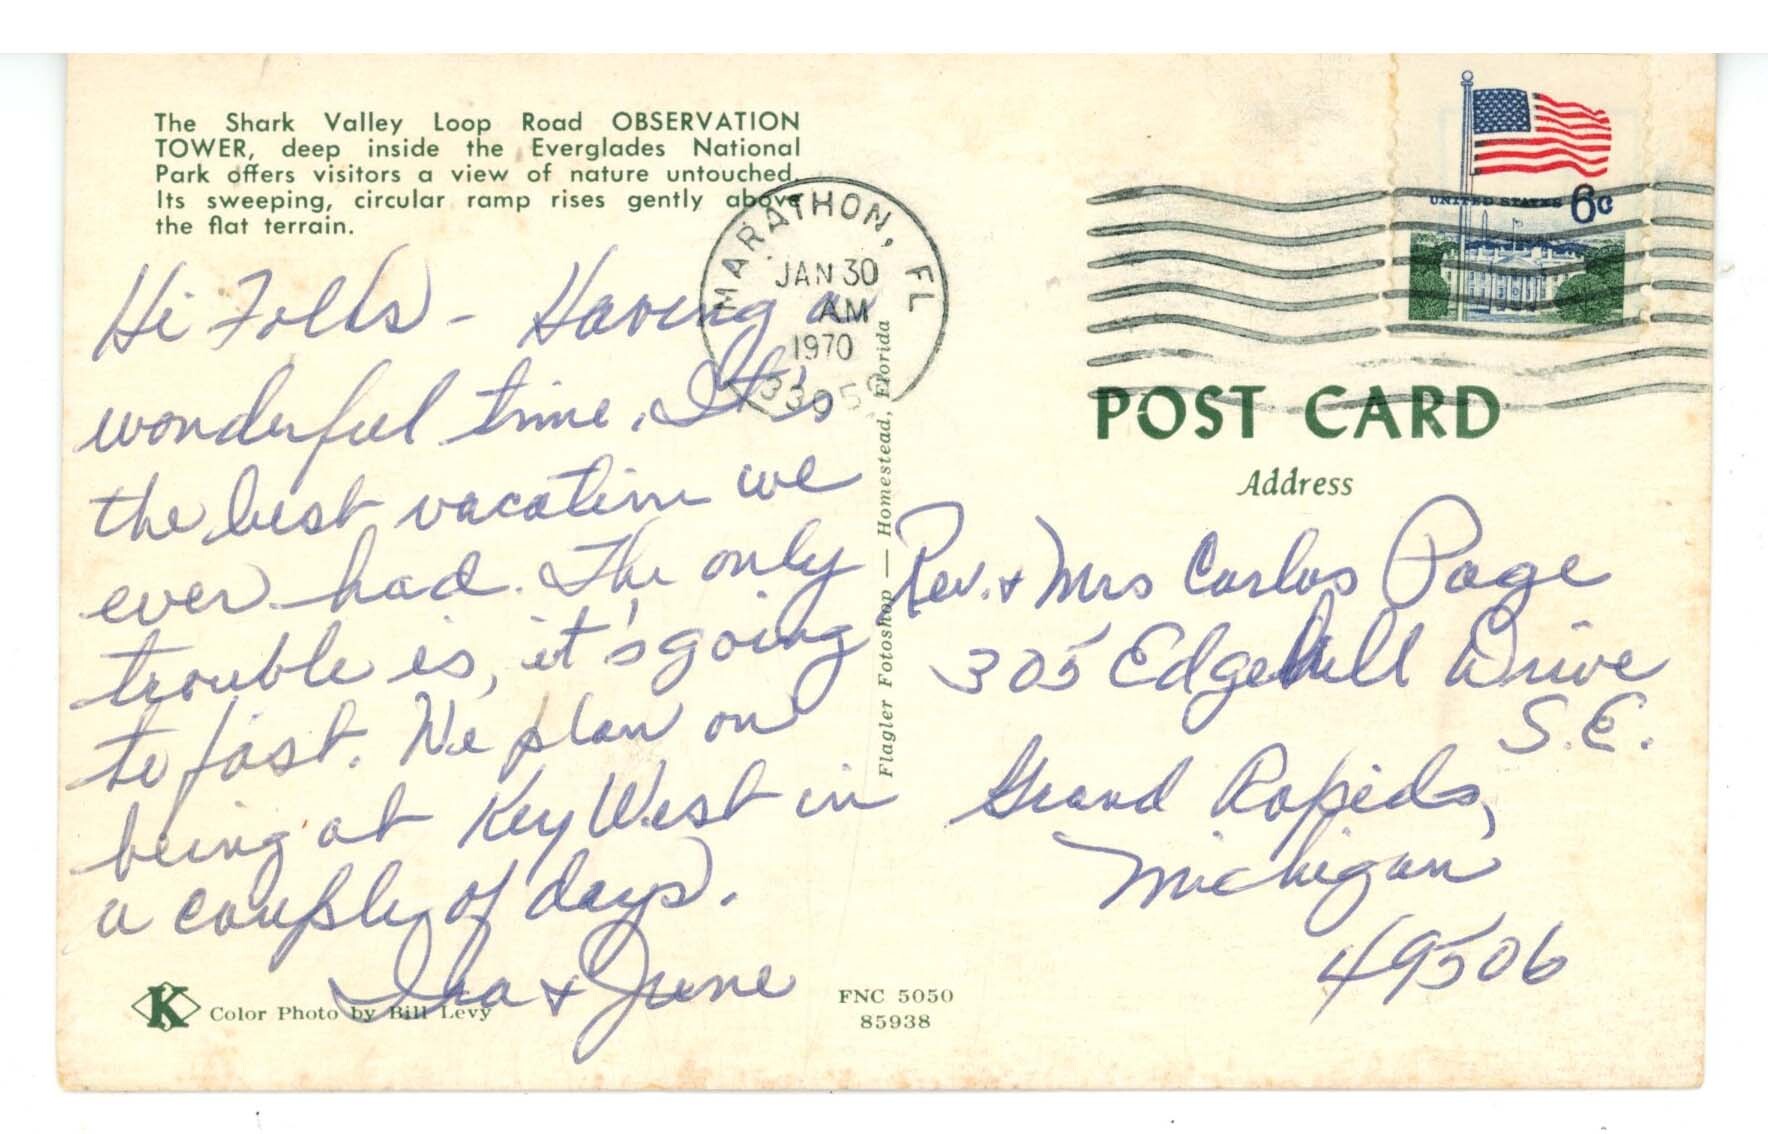 The Shark Valley Loop Road OBSERVATION
TOWER, deep inside the Everglades National
Park offers visitors a view of nature untouched.
Its sweeping, circular ramp rises gently above
the flat terrain.
MARATHON, FL
JAN 30
AM
1970
33050
UNITED STATES 6c
Hi Folks - Having a
wonderful time. It's
the best vacation we
ever had. The only
trouble is, it's going
to fast. We plan on
being at Key West in
a couple of days.
Ira & June
Flagler Fotoshop — Homestead, Florida
POST CARD
Address
Rev. & Mrs Carlos Page
305 Edgehill Drive
S.E.
Grand Rapids,
Michigan
49506
K Color Photo by Bill Levy
FNC 5050
85938